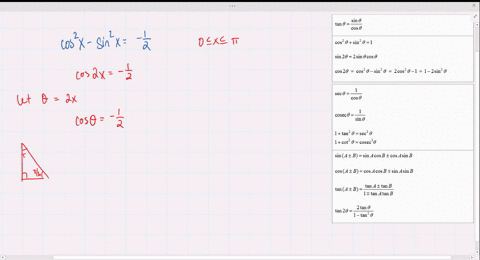 cos²x - sin²x = -1/2
0 ≤ x ≤ π
cos2x = -1/2
let θ = 2x
cosθ = -1/2
tan θ = sin θ / cos θ
cos² θ + sin² θ = 1
sin 2θ = 2 sin θ cos θ
cos 2θ = cos² θ − sin² θ = 2 cos² θ − 1 = 1 − 2 sin² θ
sec θ = 1 / cos θ
cosec θ = 1 / sin θ
1 + tan² θ = sec² θ
1 + cot² θ = cosec² θ
sin (A ± B) = sin A cos B ± cos A sin B
tan (A ± B) = (tan A ± tan B) / (1 ∓ tan A tan B)
tan 2θ = 2 tan θ / (1 − tan² θ)